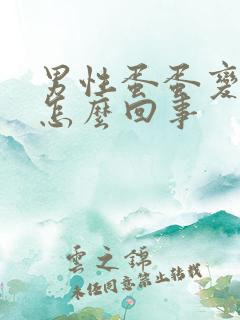 男性蛋蛋變
怎麼回事
雲之錦
未经同意禁止转载